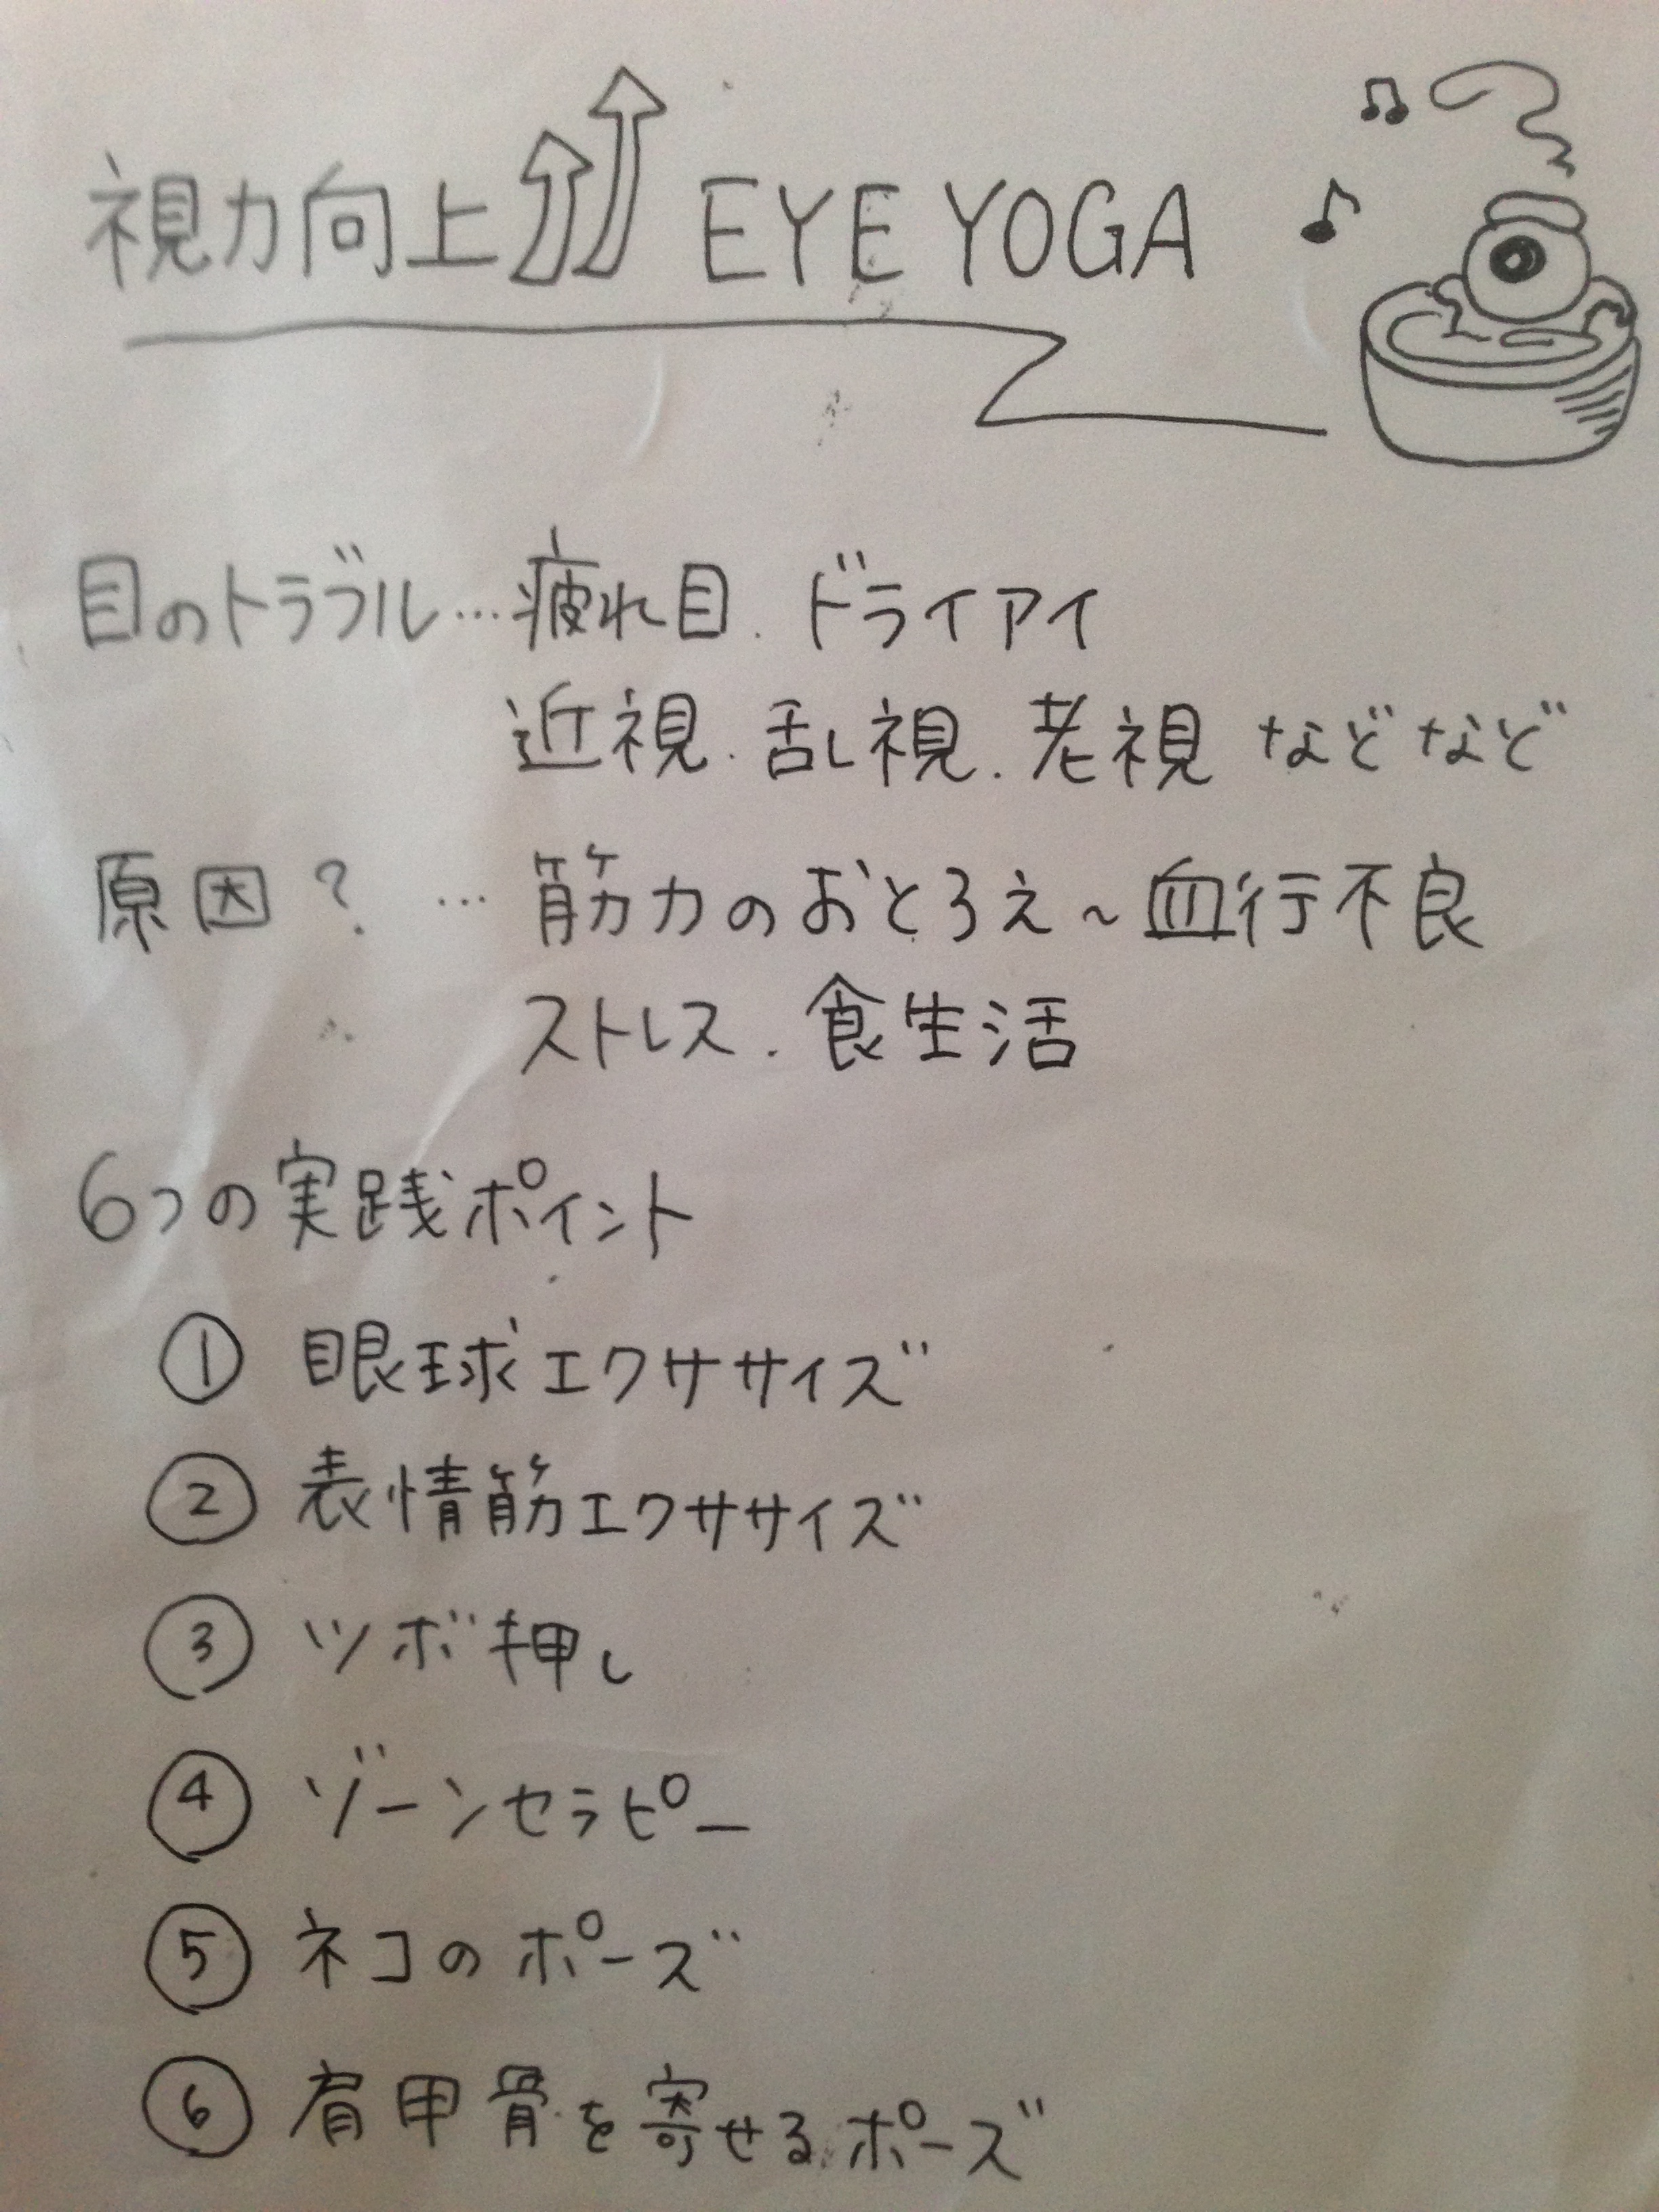 視力向上 EYE YOGA
目のトラブル…疲れ目．ドライアイ
近視．乱視．老視 などなど
原因？ … 筋力のおとろえ～血行不良
ストレス．食生活
6つの実践ポイント
① 眼球エクササイズ
② 表情筋エクササイズ
③ ツボ押し
④ ゾーンセラピー
⑤ ネコのポーズ
⑥ 肩甲骨を寄せるポーズ